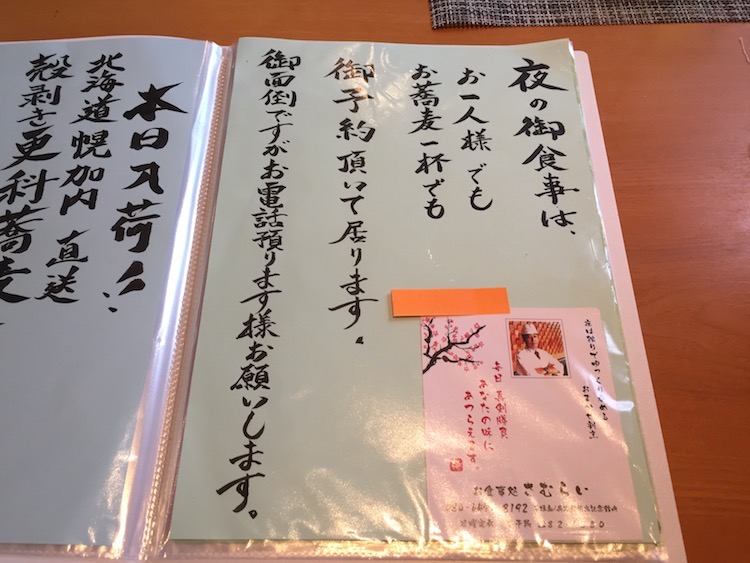 夜の御食事は、
お一人様でも
お蕎麦一杯でも
御予約頂いて居ります。
御面倒ですがお電話預ります様お願いします。
夜は独りでゆっくり
毎日真剣勝負
あなたの味に
あつらえます。
お食事処 さむらい
8192
本日入荷!!
北海道幌加内直送
殻剥き更科蕎麦